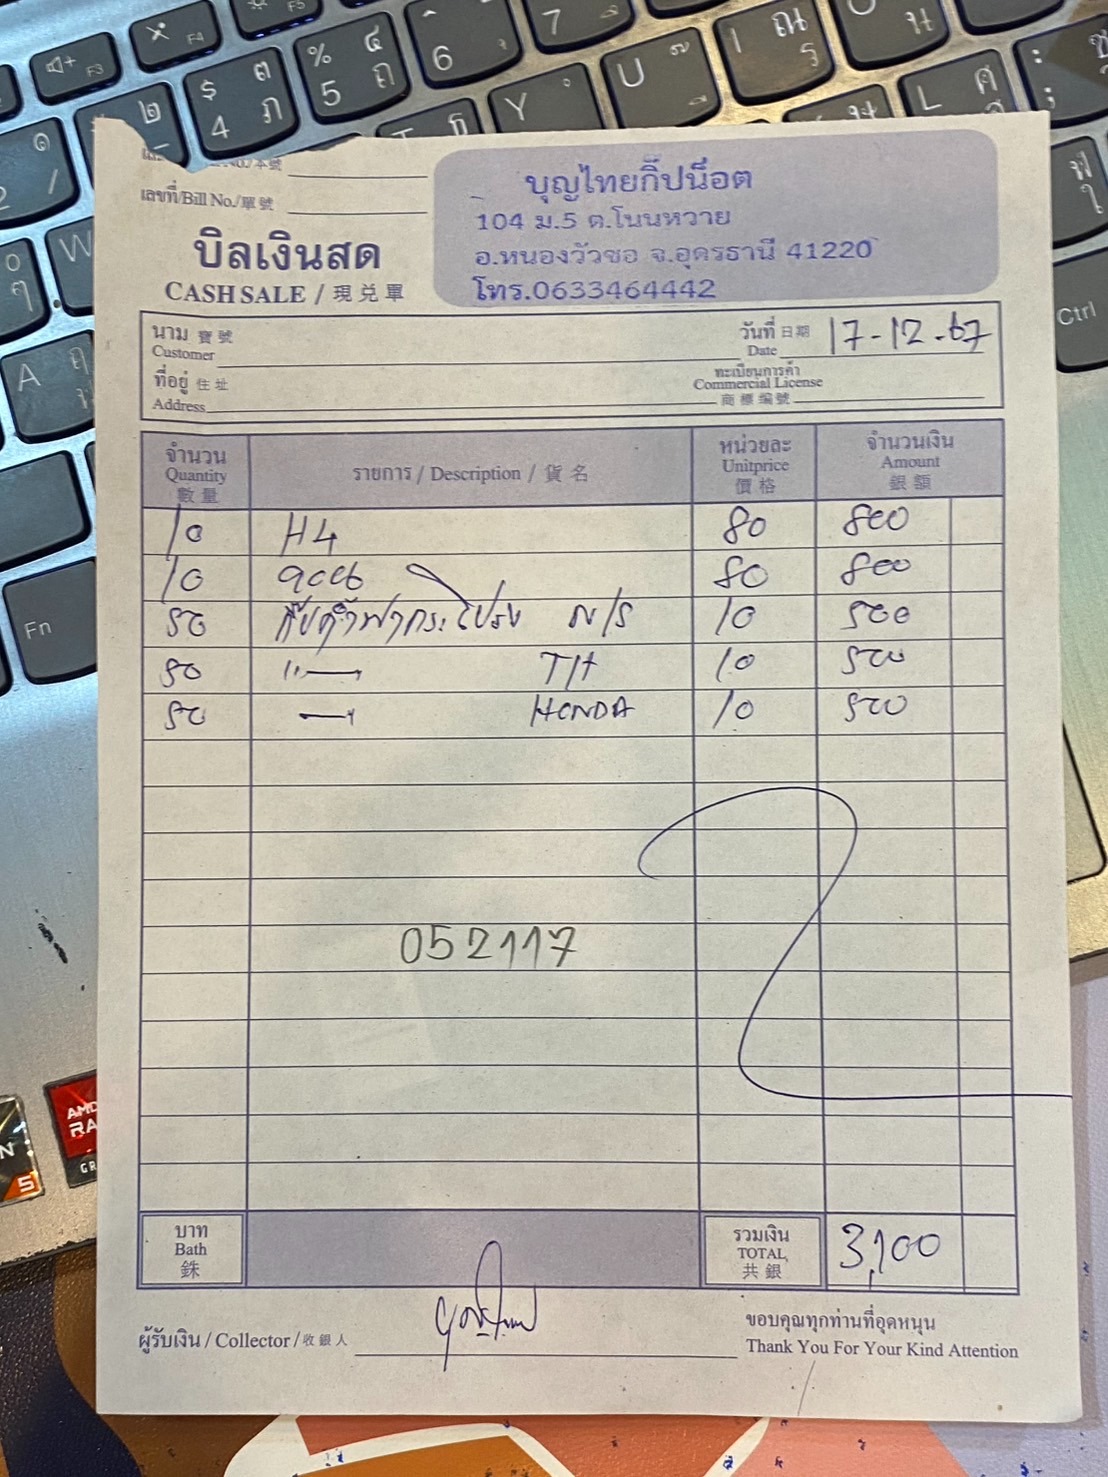 No./本號
เลขที่/Bill No./單號
บิลเงินสด
CASH SALE / 現兌單
บุญไทยกิ๊ปน็อต
104 ม.5 ต.โนนหวาย
อ.หนองวัวซอ จ.อุดรธานี 41220
โทร.0633464442
นาม 寶號
Customer
วันที่ 日期
Date 17-12-67
ที่อยู่ 住址
Address
ทะเบียนการค้า
Commercial License
商標編號
จำนวน
Quantity
數量
รายการ / Description / 貨名
หน่วยละ
Unitprice
價格
จำนวนเงิน
Amount
銀額
10 H4 80 800
10 9006 80 800
50 กิ๊บคิ้วฝากระโปรง N/S 10 500
50 " T/H 10 500
50 HONDA 10 500
052117
บาท
Bath
銖
รวมเงิน
TOTAL
共銀
3,100
ผู้รับเงิน / Collector / 收銀人
ขอบคุณทุกท่านที่อุดหนุน
Thank You For Your Kind Attention
F3
F4
F5
$ 4
% 5
6
7
Y
U
I
L
W
A
Fn
Ctrl
AMD
RA
GR
N
5